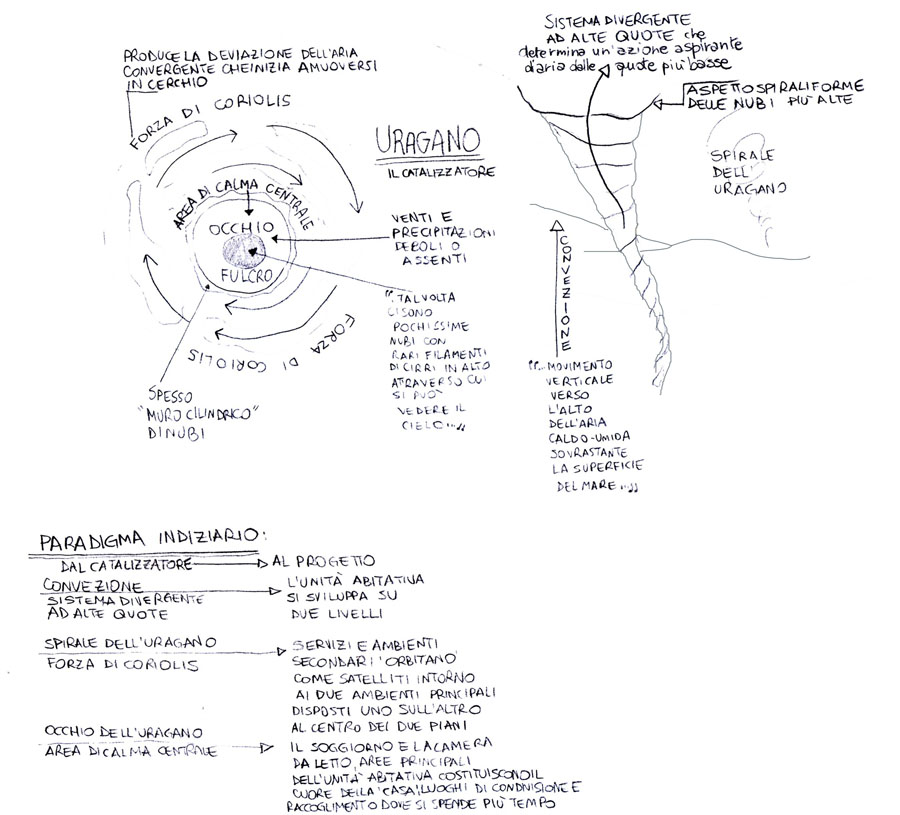 PRODUCE LA DEVIAZIONE DELL'ARIA
CONVERGENTE CHE INIZIA A MUOVERSI
IN CERCHIO
FORZA DI CORIOLIS
AREA DI CALMA CENTRALE
OCCHIO
FULCRO
FORZA DI CORIOLIS
SPESSO
"MURO CILINDRICO"
DI NUBI
URAGANO
IL CATALIZZATORE
VENTI E
PRECIPITAZIONI
DEBOLI O
ASSENTI
"..TALVOLTA
CI SONO
POCHISSIME
NUBI CON
RARI FILAMENTI
DI CIRRI IN ALTO
ATRAVERSO CUI
SI PUO'
VEDERE IL
CIELO..."
SISTEMA DIVERGENTE
AD ALTE QUOTE che
determina un'azione aspirante
d'aria dalle quote più basse
ASPETTO SPIRALIFORME
DELLE NUBI PIÙ ALTE
SPIRALE
DELL'
URAGANO
CONVEZIONE
"...MOVIMENTO
VERTICALE
VERSO
L'ALTO
DELL'ARIA
CALDO-UMIDA
SOVRASTANTE
LA SUPERFICIE
DEL MARE..."
PARADIGMA INDIZIARIO:
DAL CATALIZZATORE AL PROGETTO
CONVEZIONE
SISTEMA DIVERGENTE
AD ALTE QUOTE
L'UNITÀ ABITATIVA
SI SVILUPPA SU
DUE LIVELLI
SPIRALE DELL'URAGANO
FORZA DI CORIOLIS
SERVIZI E AMBIENTI
SECONDARI 'ORBITANO'
COME SATELLITI INTORNO
AI DUE AMBIENTI PRINCIPALI
DISPOSTI UNO SULL'ALTRO
AL CENTRO DEI DUE PIANI
OCCHIO DELL'URAGANO
AREA DI CALMA CENTRALE
IL SOGGIORNO E LA CAMERA
DA LETTO, AREE PRINCIPALI
DELL'UNITÀ ABITATIVA COSTITUISCONO IL
CUORE DELLA 'CASA', LUOGHI DI CONDIVISIONE E
RACCOGLIMENTO DOVE SI SPENDE PIÙ TEMPO